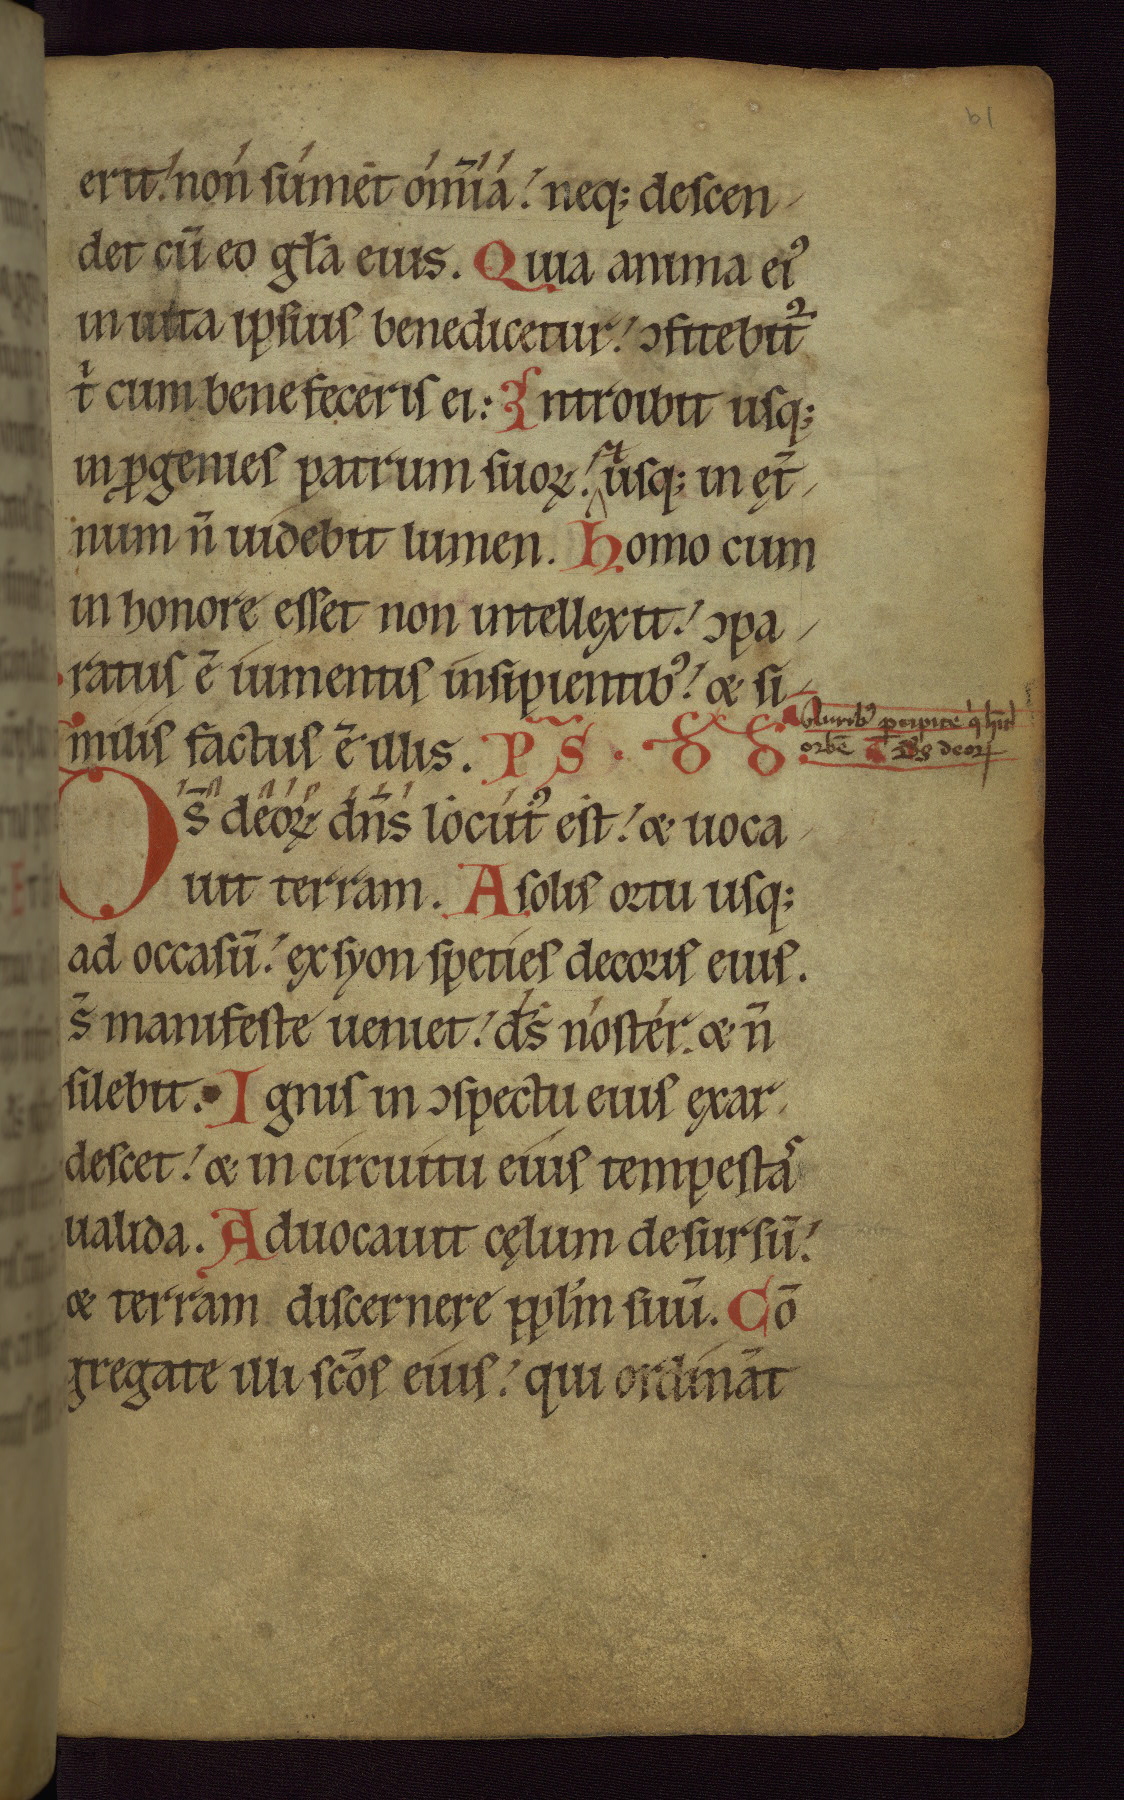 61
erit! non sumet om̄ia! neq; descen-
det cū eo gl̄a eius. Quia anima ei᾿
in uita ipsius benedicetur! ɔfitebit᾿
t̄ cum benefeceris ei: Introibit usq;
in ꝓgenies patrum suoꝝ! & usq; in ęt̄-
num n̄ uidebit lumen. Homo cum
in honore esset non intellexit! ɔpa-
ratus ē iumentis insipientib᾿! & si-
milis factus ē illis. PS̄.
auribᵒ percipite q̇ hītˀ
orbē
D̄s deoꝝ
Ds̄ deoꝝ dn̄s locut᾿ est! & uoca-
uit terram. A solis ortu usq;
ad occasū! ex syon speties decoris eius.
Ds̄ manifeste ueniet! ds̄ noster. & n̄
silebit. Ignis in ɔspectu eius exar-
descet! & in circuitu eius tempestas
ualida. Aduocauit cęlum desursū!
& terram discernere ppl̄m suū. Cō-
gregate illi scōs eius! qui ordināt